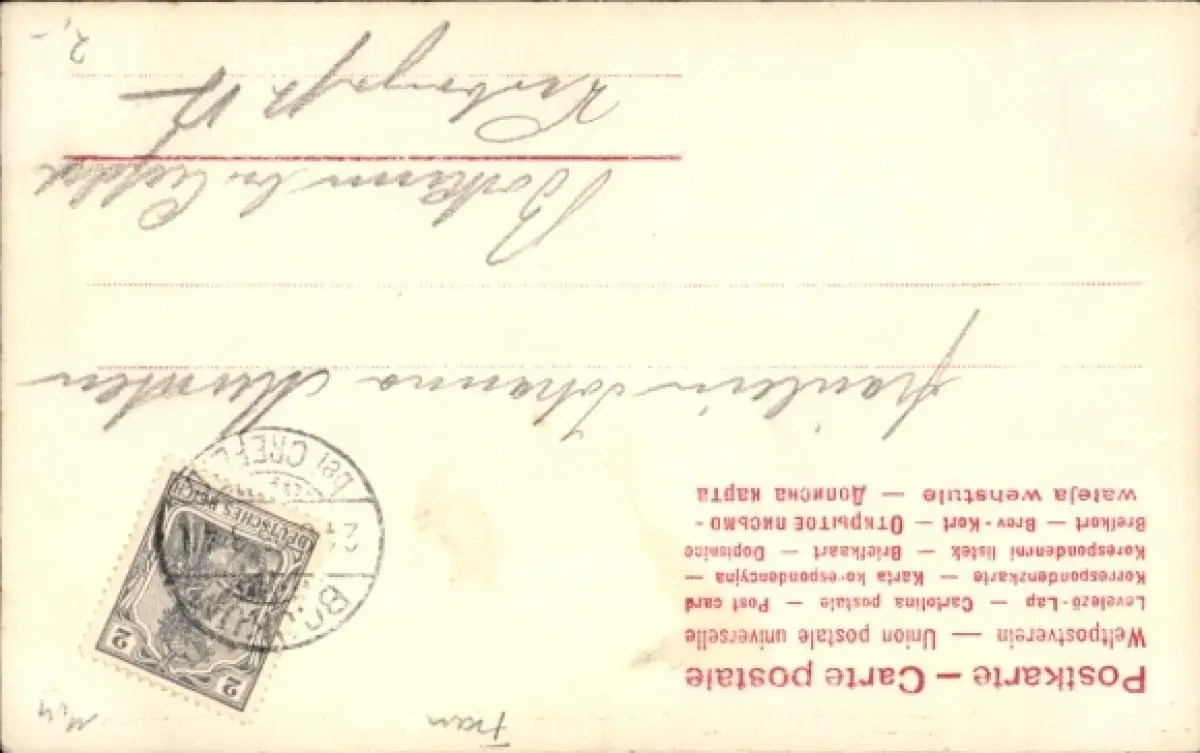 Fran
Postkarte – Carte postale
Weltpostverein — Union postale universelle
Levelező-Lap — Cartolina postale — Post card
Korrespondenzkarte — Karta korespondencyjna —
Korespondenrni listek — Briefkaart — Dopisnice
Brefkort — Brev-Kort — Открытое письмо -
wateja wehstule — Дописна карта
2 2
DEUTSCHES REICH
bei CREFE
Fräulein Johanna
Bockum b. Crefeld
17
2,-